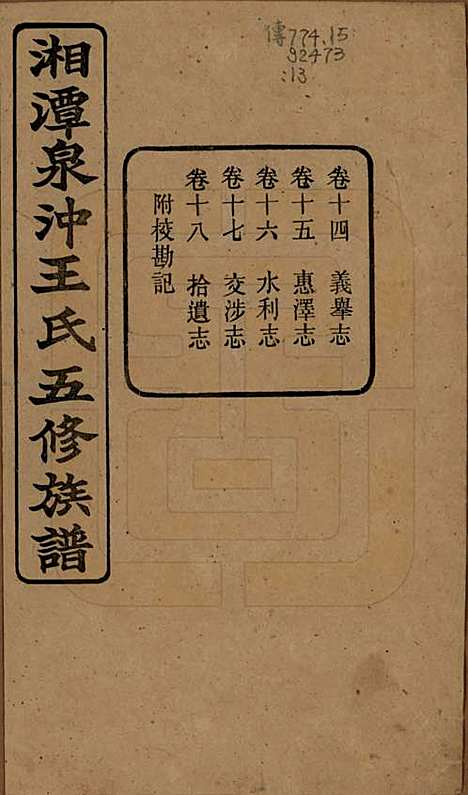 湘潭泉沖王氏五修族譜
卷十四 義舉志
卷十五 惠澤志
卷十六 水利志
卷十七 交涉志
卷十八 拾遺志
附校勘記
傳774.15
92473
:13